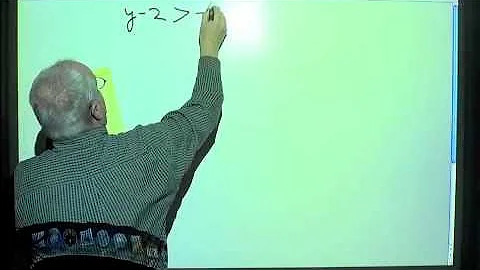 y-2 > -